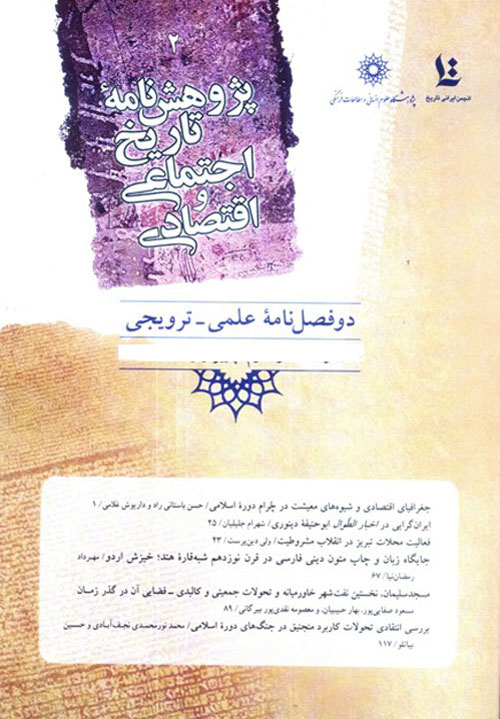 ۲
پژوهش‌نامهٔ
تاریخ
اجتماعی
و
اقتصادی
انجمن ایرانی تاریخ
پژوهشگاه علوم انسانی و مطالعات فرهنگی
دو فصل‌نامهٔ علمی - ترویجی
جغرافیای اقتصادی و شیوه‌های معیشت در جَرام دورهٔ اسلامی/ حسن باستانی راد و داریوش غلامی/ ۱
ایران‌گرایی در اخبار الطّوال ابوحنیفهٔ دینوری/ شهرام جلیلیان/ ۲۵
فعالیت محلات تبریز در انقلاب مشروطیت/ ولی دین‌پرست/ ۴۳
جایگاه زبان و چاپ متون دینی فارسی در قرن نوزدهم شبه‌قارهٔ هند؛ خیزش اردو/ مهرداد
رمضان‌نیا/ ۶۷
مسجدسلیمان، نخستین نفت‌شهر خاورمیانه و تحولات جمعیتی و کالبدی - فضایی آن در گذر زمان
مسعود صفایی‌پور، بهار حبیبیان، و معصومه نقدی‌پور بیرگانی/ ۸۹
بررسی انتقادی تحولات کاربرد منجنیق در جنگ‌های دورهٔ اسلامی/ محمد نورمحمدی نجف‌آبادی و حسین
بیاتلو/ ۱۱۷